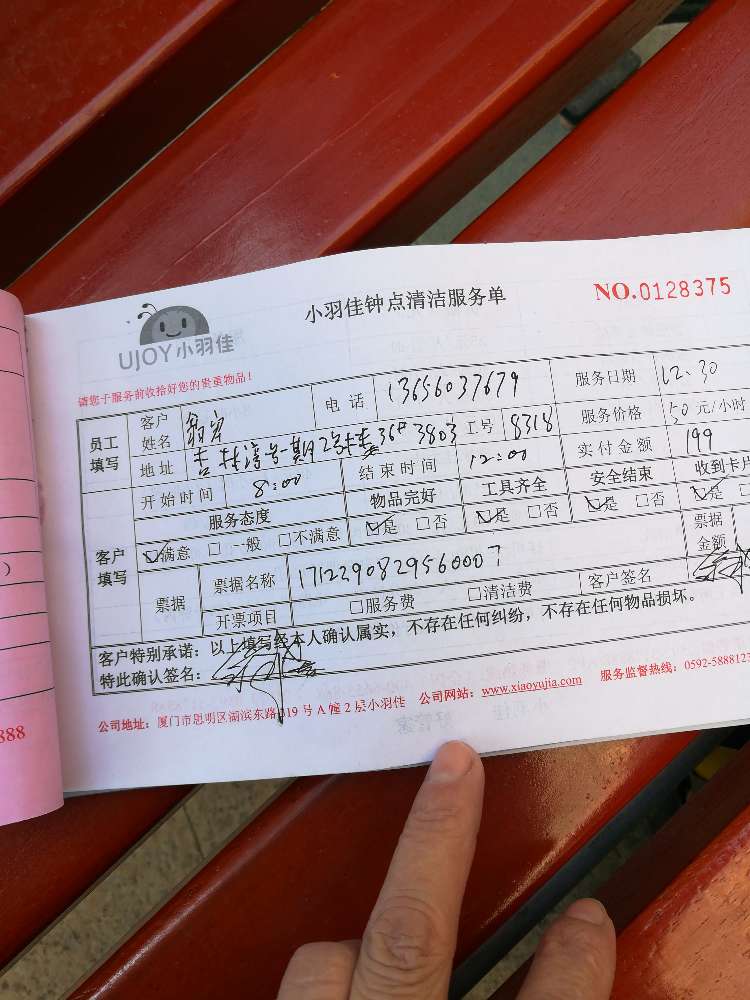 小羽佳钟点清洁服务单
NO.0128375
UJOY小羽佳
请您于服务前收拾好您的贵重物品!
员工填写 客户姓名 电话 13656037679 服务日期 12.30
地址 一期2 36# 3803 工号 8318 服务价格 50元/小时
客户填写 开始时间 8:00 结束时间 12:00 实付金额 199
服务态度 物品完好 工具齐全 安全结束 收到卡片
☑满意 □一般 □不满意 ☑是 □否 ☑是 □否 ☑是 □否 ☑是
票据 票据名称 1712290829560007 票据金额
开票项目 □服务费 □清洁费 客户签名
客户特别承诺:以上填写经本人确认属实,不存在任何纠纷,不存在任何物品损坏。
特此确认签名:
公司地址:厦门市思明区湖滨东路319号A幢2层小羽佳 公司网站:www.xiaoyujia.com 服务监督热线:0592-588812
888